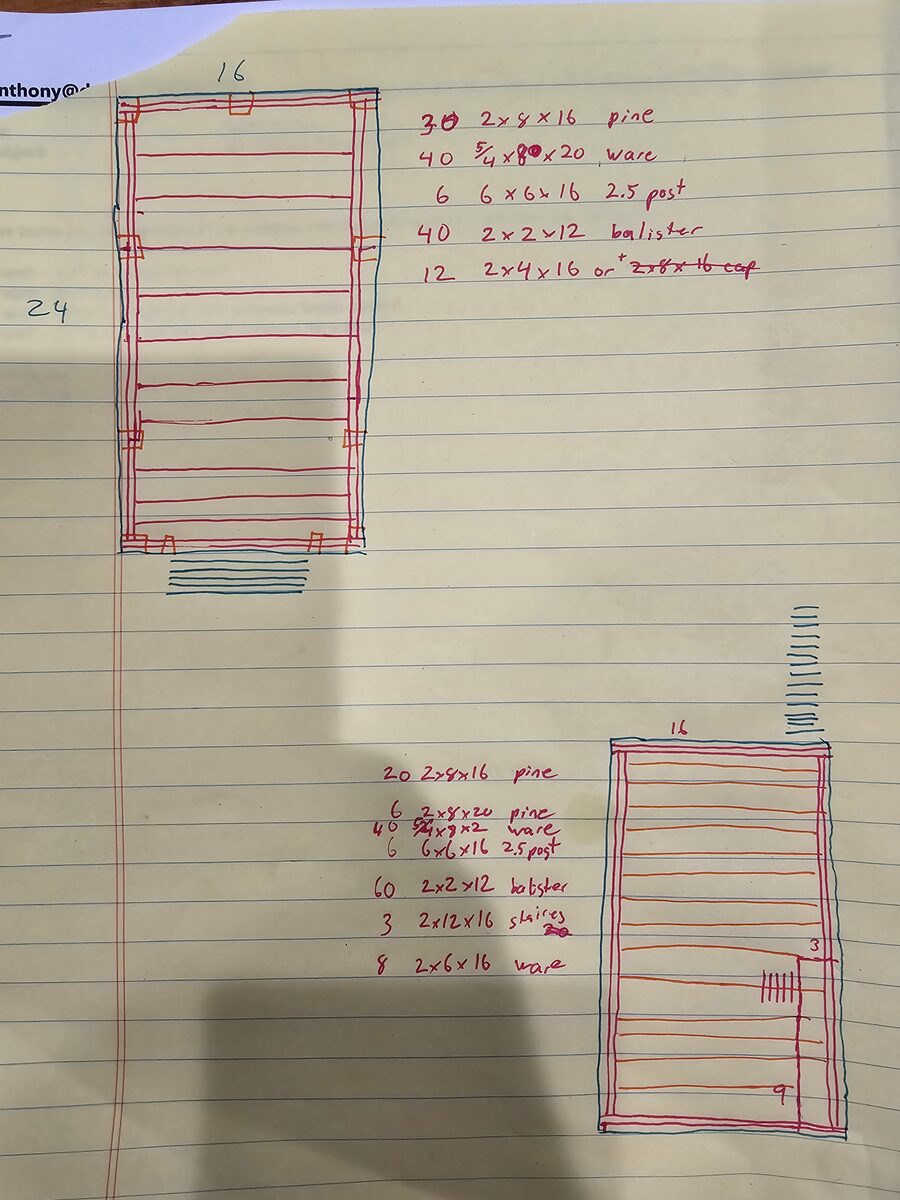 nthony@d
16
30 2x8x16 pine
40 5/4x8x20 ware
6 6x6x16 2.5 post
40 2x2x12 balister
12 2x4x16 or + 2x8x16 cap
24
16
20 2x8x16 pine
6 2x8x20 pine
40 5/4x8x2 ware
6 6x6x16 2.5 post
60 2x2x12 balister
3 2x12x16 staires
8 2x6x16 ware
3
9